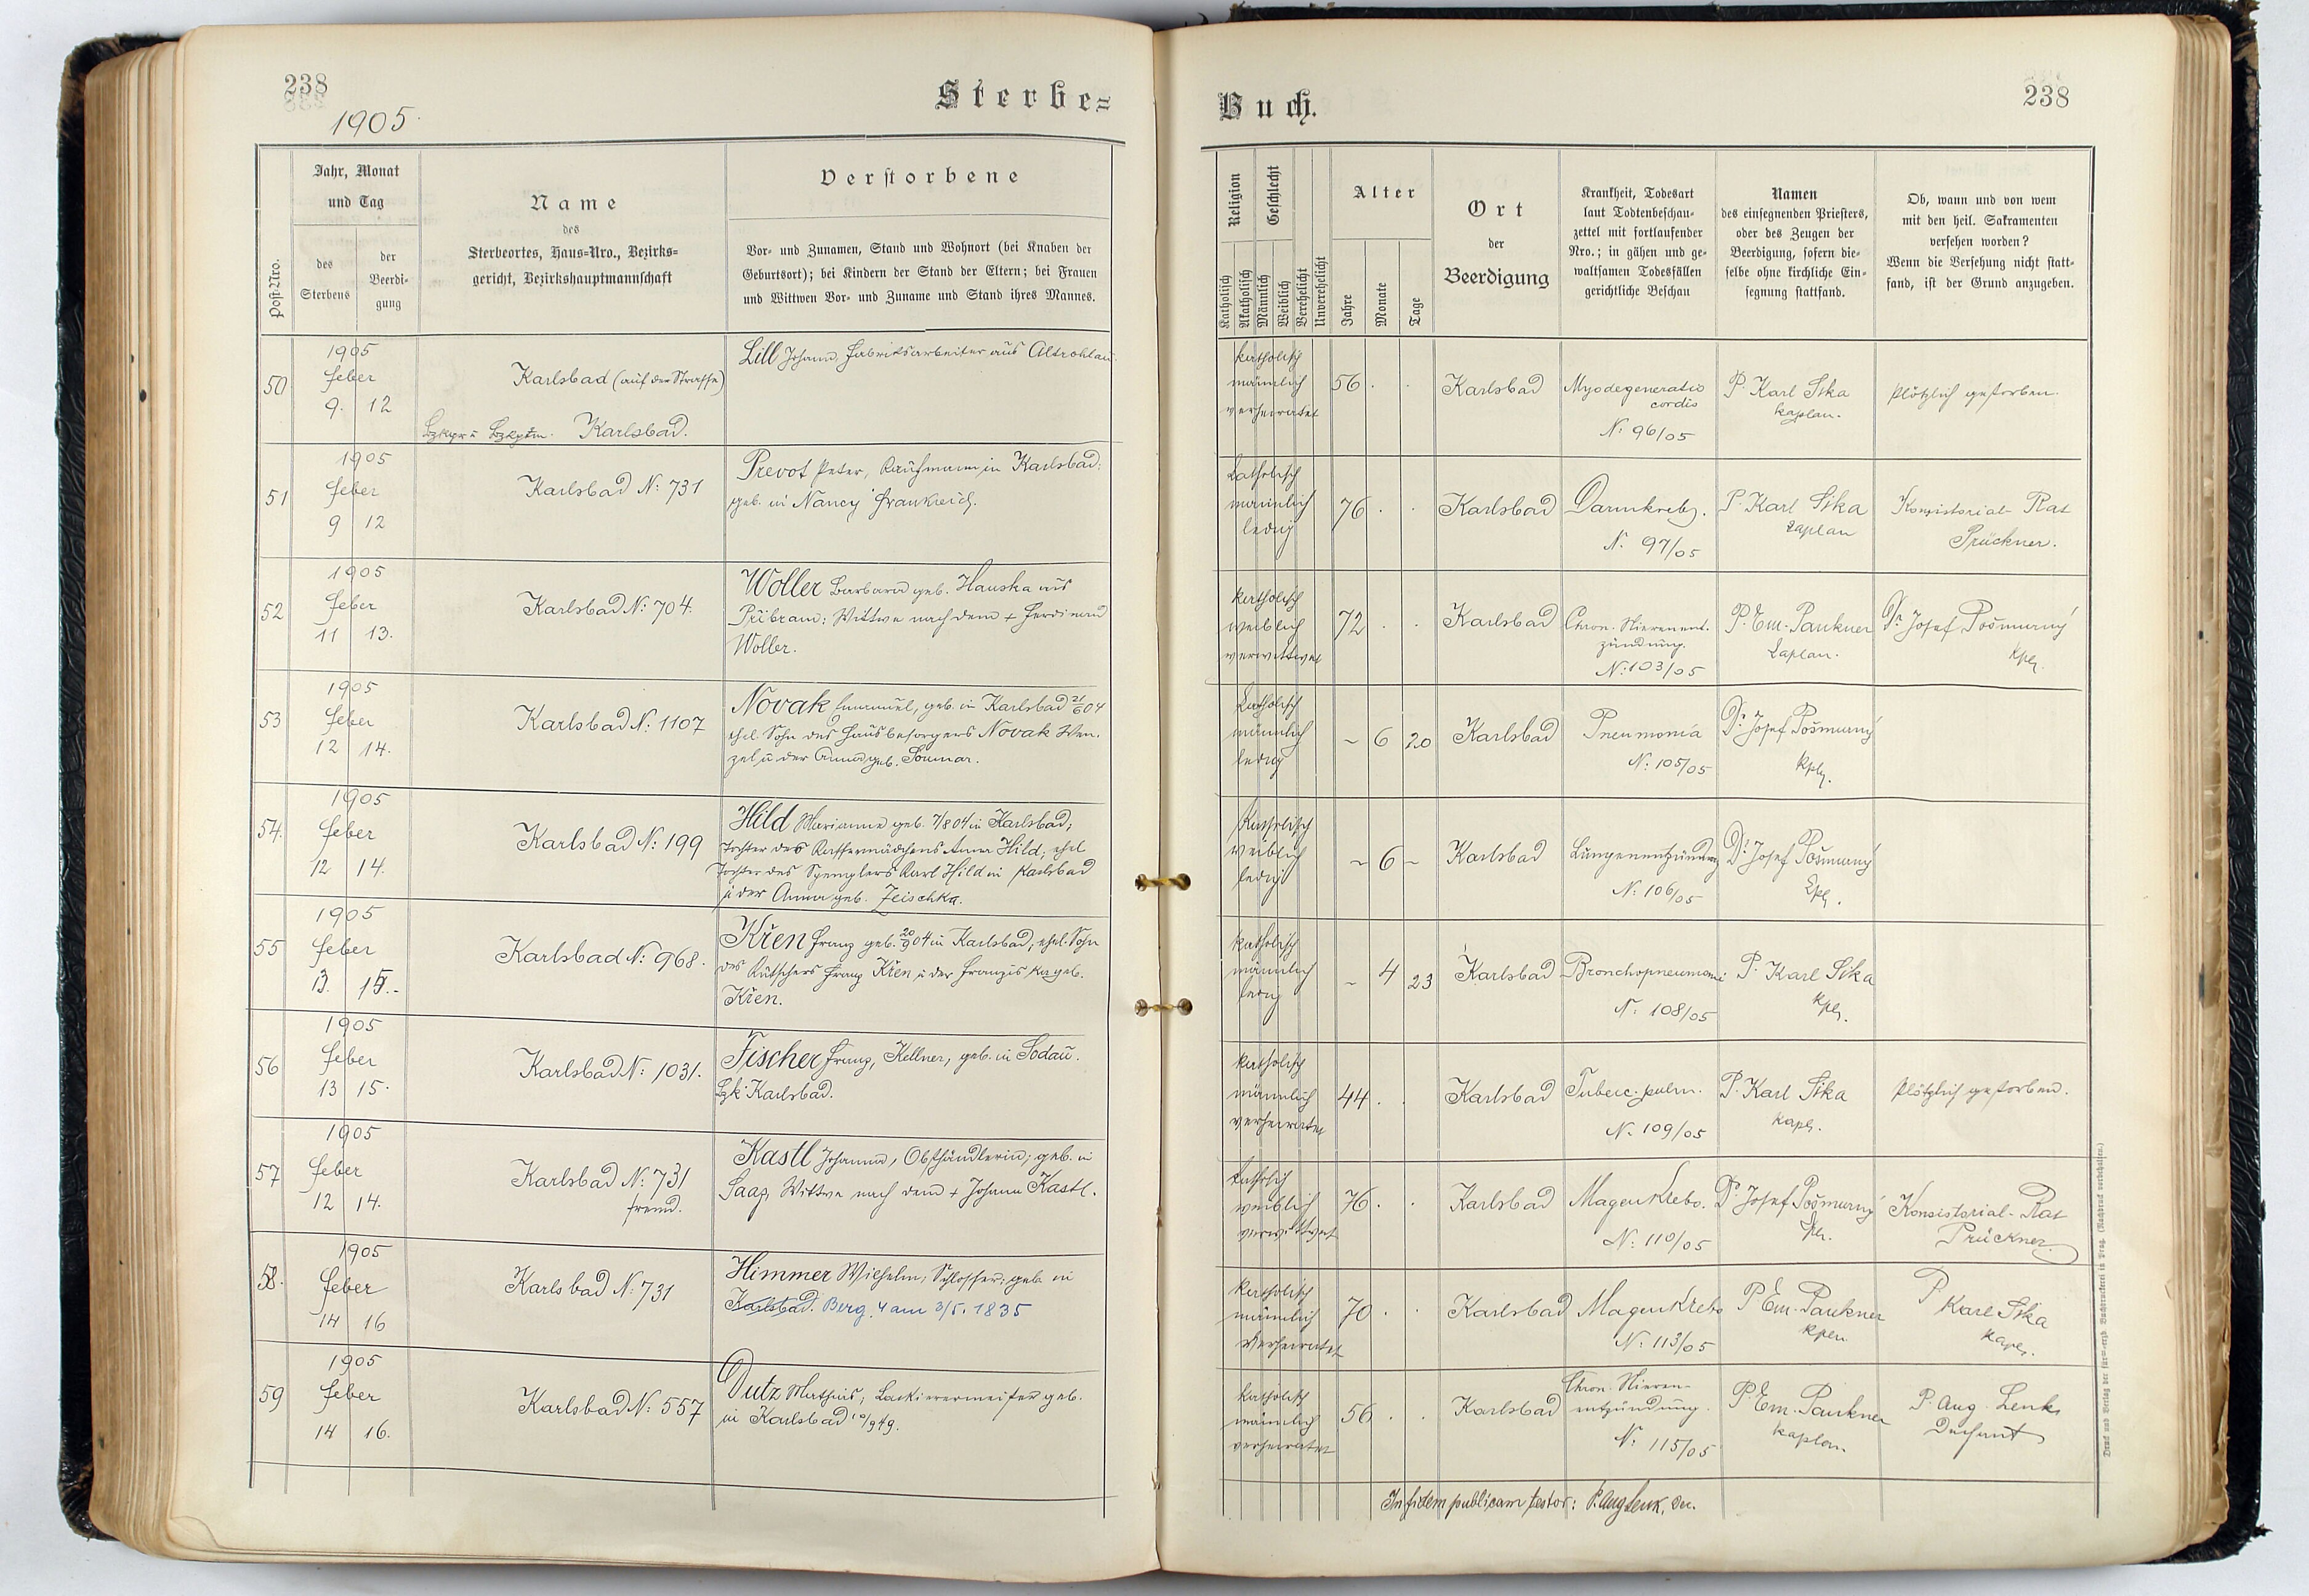 238
1905.
Sterbe=
Post-Nro.
Jahr, Monat
und Tag
des
Sterbens
der
Beerdi-
gung
Name
des
Sterbeortes, Haus-Nro., Bezirks-
gericht, Bezirkshauptmannschaft
Verstorbene
Vor- und Zunamen, Stand und Wohnort (bei Knaben der
Geburtsort); bei Kindern der Stand der Eltern; bei Frauen
und Wittwen Vor- und Zuname und Stand ihres Mannes.
50
1905
Feber
9. 12
Karlsbad (auf der Strasse)
Karlsbad.
Lill Johann, Fabriksarbeiter aus Altrohlau.
51
1905
Feber
9 12
Karlsbad N: 731
Prevot Peter, Kaufmann in Karlsbad;
geb. in Nancy Frankreich.
52
1905
Feber
11 13.
Karlsbad N: 704.
Woller Barbara geb. Hauska aus
Přibram; Wittwe nach dem + Ferdinand
Woller.
53
1905
Feber
12 14.
Karlsbad N: 1107
Novak Emanuel, geb. in Karlsbad 21/6 04
ehel. Sohn des Hausbesorgers Novak Wen-
zel u der Anna geb. Soumar.
54.
1905
Feber
12 14.
Karlsbad N: 199
Hild Marianna geb. 7/8 04 in Karlsbad;
Tochter des Kaffeemädchens Anna Hild; ehel
Tochter des Spenglers Karl Hild in Karlsbad
u der Anna geb. Zeischka.
55
1905
Feber
13. 15.-
Karlsbad N: 968.
Křen Franz geb. 20/9 04 in Karlsbad; ehel. Sohn
des Kutschers Franz Křen u der Franziska geb.
Křen.
56
1905
Feber
13 15.
Karlsbad N: 1031.
Fischer Franz, Kellner, geb. in Sodau.
Bzk: Karlsbad.
57
1905
Feber
12 14.
Karlsbad N: 731
fremd.
Kastl Johanna, Obsthändlerin; geb. in
Saaz, Wittwe nach dem + Johann Kastl.
58.
1905
Feber
14 16
Karlsbad N: 731
Himmer Wilhelm, Schlosser; geb. in
Karlsbad. Berg. 4 am 3/5. 1835
59
1905
Feber
14 16.
Karlsbad N: 557
Dutz Mathias; Lackierermeister geb.
in Karlsbad 10/9 49.
Buch.
238
Religion
Katholisch
Akatholisch
Geschlecht
Männlich
Weiblich
Verehelicht
Unverehelicht
Alter
Jahre
Monate
Tage
Ort
der
Beerdigung
Krankheit, Todesart
laut Todtenbeschau-
zettel mit fortlaufender
Nro.; in gähen und ge-
waltsamen Todesfällen
gerichtliche Beschau
Namen
des einsegnenden Priesters,
oder des Zeugen der
Beerdigung, sofern die-
selbe ohne kirchliche Ein-
segnung stattfand.
Ob, wann und von wem
mit den heil. Sakramenten
versehen worden?
Wenn die Versehung nicht statt-
fand, ist der Grund anzugeben.
katholisch
männlich
verheiratet
56 . .
Karlsbad
Myodegeneratio
cordis
N: 96/05
P. Karl Sika
Kaplan.
Plötzlich gestorben.
katholisch
männlich
ledig
76 . .
Karlsbad
Darmkrebs.
N. 97/05
P. Karl Sika
Kaplan
Konsistorial-Rat
Prückner.
katholisch
weiblich
verwittwet
72 . .
Karlsbad
Chron. Nierenent-
zündung.
N: 103/05
P. Em. Paukner
Kaplan.
Dr. Josef Pošmurný
Kpl.
katholisch
männlich
ledig
- 6 20
Karlsbad
Pneumonia
N: 105/05
Dr. Josef Pošmurný
Kpl.
katholisch
weiblich
ledig
- 6 -
Karlsbad
Lungenentzündung
N: 106/05
Dr. Josef Pošmurný
Kpl.
katholisch
männlich
ledig
- 4 23
Karlsbad
Bronchopneumonie
N: 108/05
P. Karl Sika
Kpl.
katholisch
männlich
verheiratet
44 . .
Karlsbad
Tuberc. pulm.
N. 109/05
P. Karl Sika
Kapl.
Plötzlich gestorben.
kathol.
weiblich
verwittwet
76 . .
Karlsbad
Magenkrebs.
N: 110/05
Dr. Josef Pošmurný
Kpl.
Konsistorial-Rat
Prückner.
katholisch
männlich
verheiratet
70 . .
Karlsbad
Magenkrebs
N: 113/05
P. Em. Paukner
Kpln
P Karl Sika
Kapl.
katholisch
männlich
verheiratet
56 . .
Karlsbad
Chron. Nieren-
entzündung.
N: 115/05
P. Em. Paukner
Kaplan
P. Aug. Lenk
Dechant
In fidem publicam testor: P. Aug Lenk, Dec.